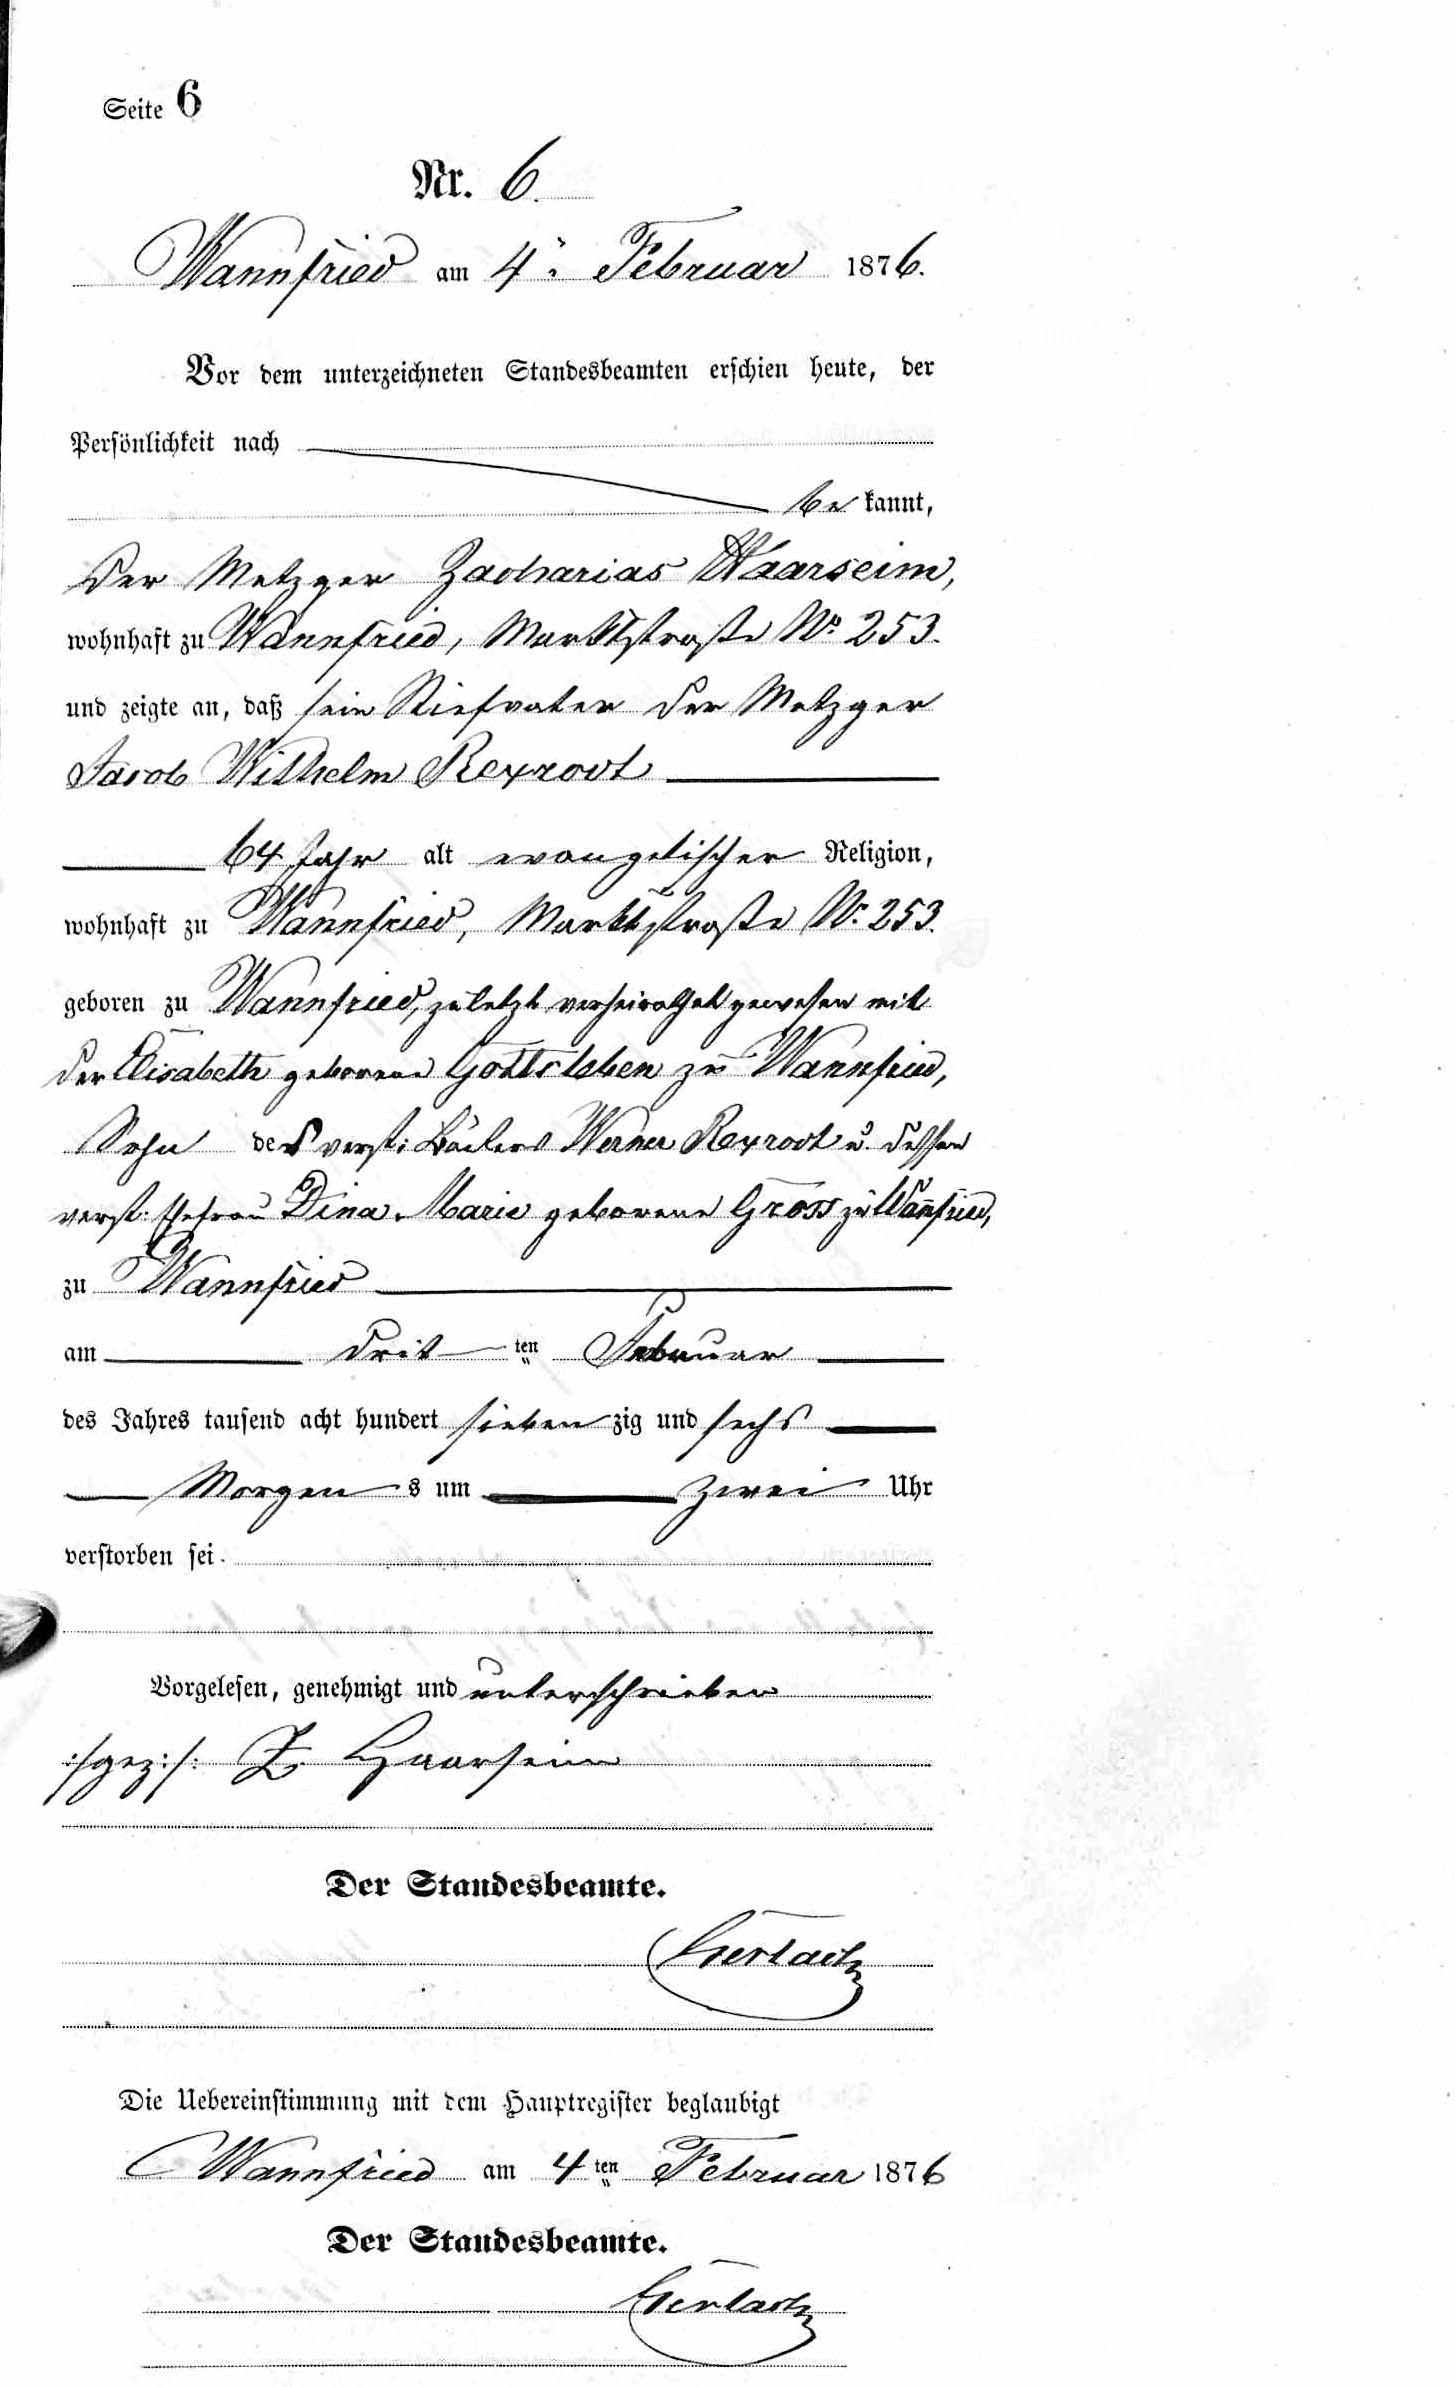 Seite 6
Nr. 6.
Wannfried am 4. Februar 1876.
Vor dem unterzeichneten Standesbeamten erschien heute, der
Persönlichkeit nach
be kannt,
der Metzger Zacharias Haarseim,
wohnhaft zu Wannfried, Marktstraße No 253.
und zeigte an, daß sein Stiefvater der Metzger
Jacob Wilhelm Rexrodt
64 Jahr alt evangelischer Religion,
wohnhaft zu Wannfried, Marktstraße No 253.
geboren zu Wannfried, zuletzt verheirathet gewesen mit
der Elisabeth geborene Gottsleben zu Wannfried,
Sohn des verst: Bäckers Werner Rexrodt u. dessen
verst: Ehefrau Dina Marie geborene Gross zu Wan̄fried,
zu Wannfried
am drit ten Februar
des Jahres tausend acht hundert sieben zig und sechs
Morgen s um zwei Uhr
verstorben sei.
Vorgelesen, genehmigt und unterschrieben
:/gez:/: Z. Haarseim
Der Standesbeamte.
Gerlach
Die Uebereinstimmung mit dem Hauptregister beglaubigt
Wannfried am 4ten Februar 1876
Der Standesbeamte.
Gerlach